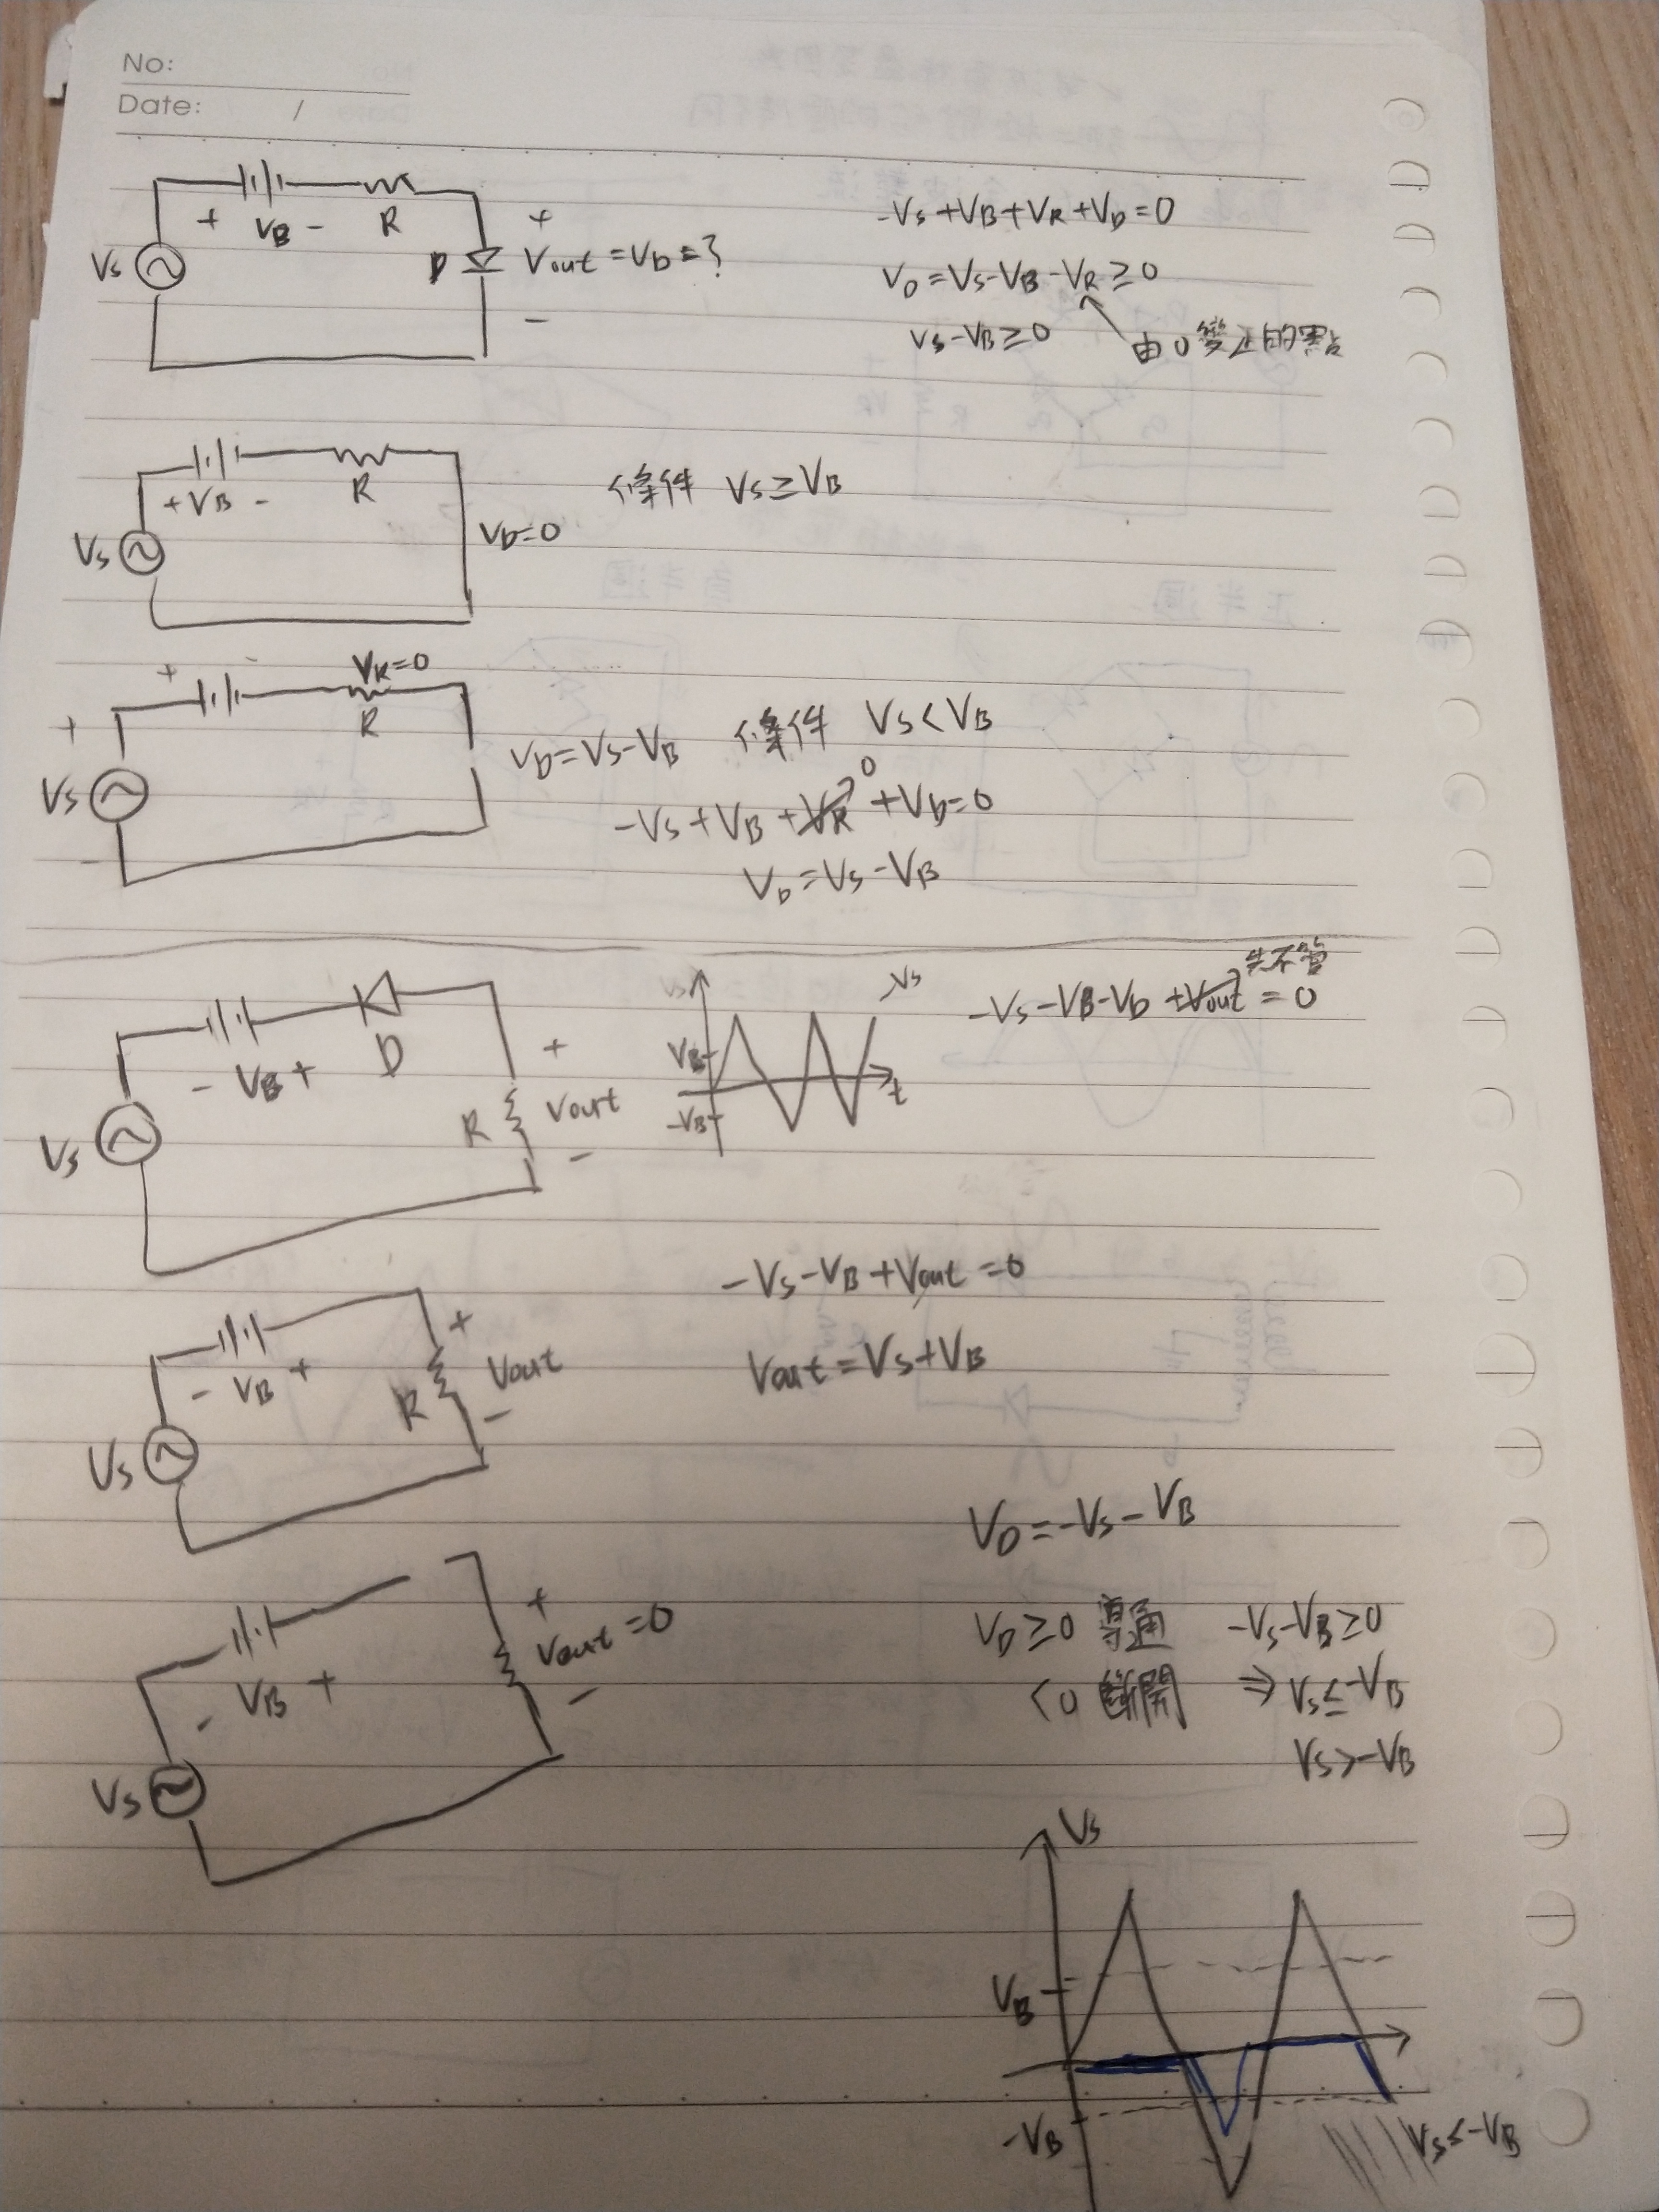 No:
Date: /
+ VB - R +
Vs D Vout = VD = ?
-
-Vs + VB + VR + VD = 0
VD = Vs - VB - VR ≥ 0
Vs - VB ≥ 0 由0變正的點
+ VB - R
Vs VD = 0
條件 Vs ≥ VB
+ - VR = 0
+ R
Vs
-
VD = Vs - VB 條件 Vs < VB
-Vs + VB + VR 0 + VD = 0
VD = Vs - VB
- VB + D +
Vs R Vout
-
Vs Vs
VB
t
-VB
先不管
-Vs - VB - VD + Vout = 0
- VB + +
Vs R Vout
-
-Vs - VB + Vout = 0
Vout = Vs + VB
VD = -Vs - VB
- VB + +
Vs Vout = 0
-
VD ≥ 0 導通 -Vs - VB ≥ 0
< 0 斷開 ⇒ Vs ≤ -VB
Vs > -VB
Vs
VB
-VB
Vs ≤ -VB